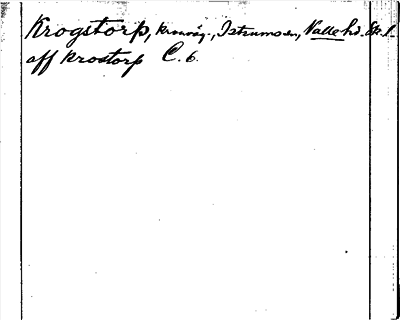 Krogstorp, kronoäg., Istrums sn, Valle hd. Sk. l.
aff Krostorp C. 6.